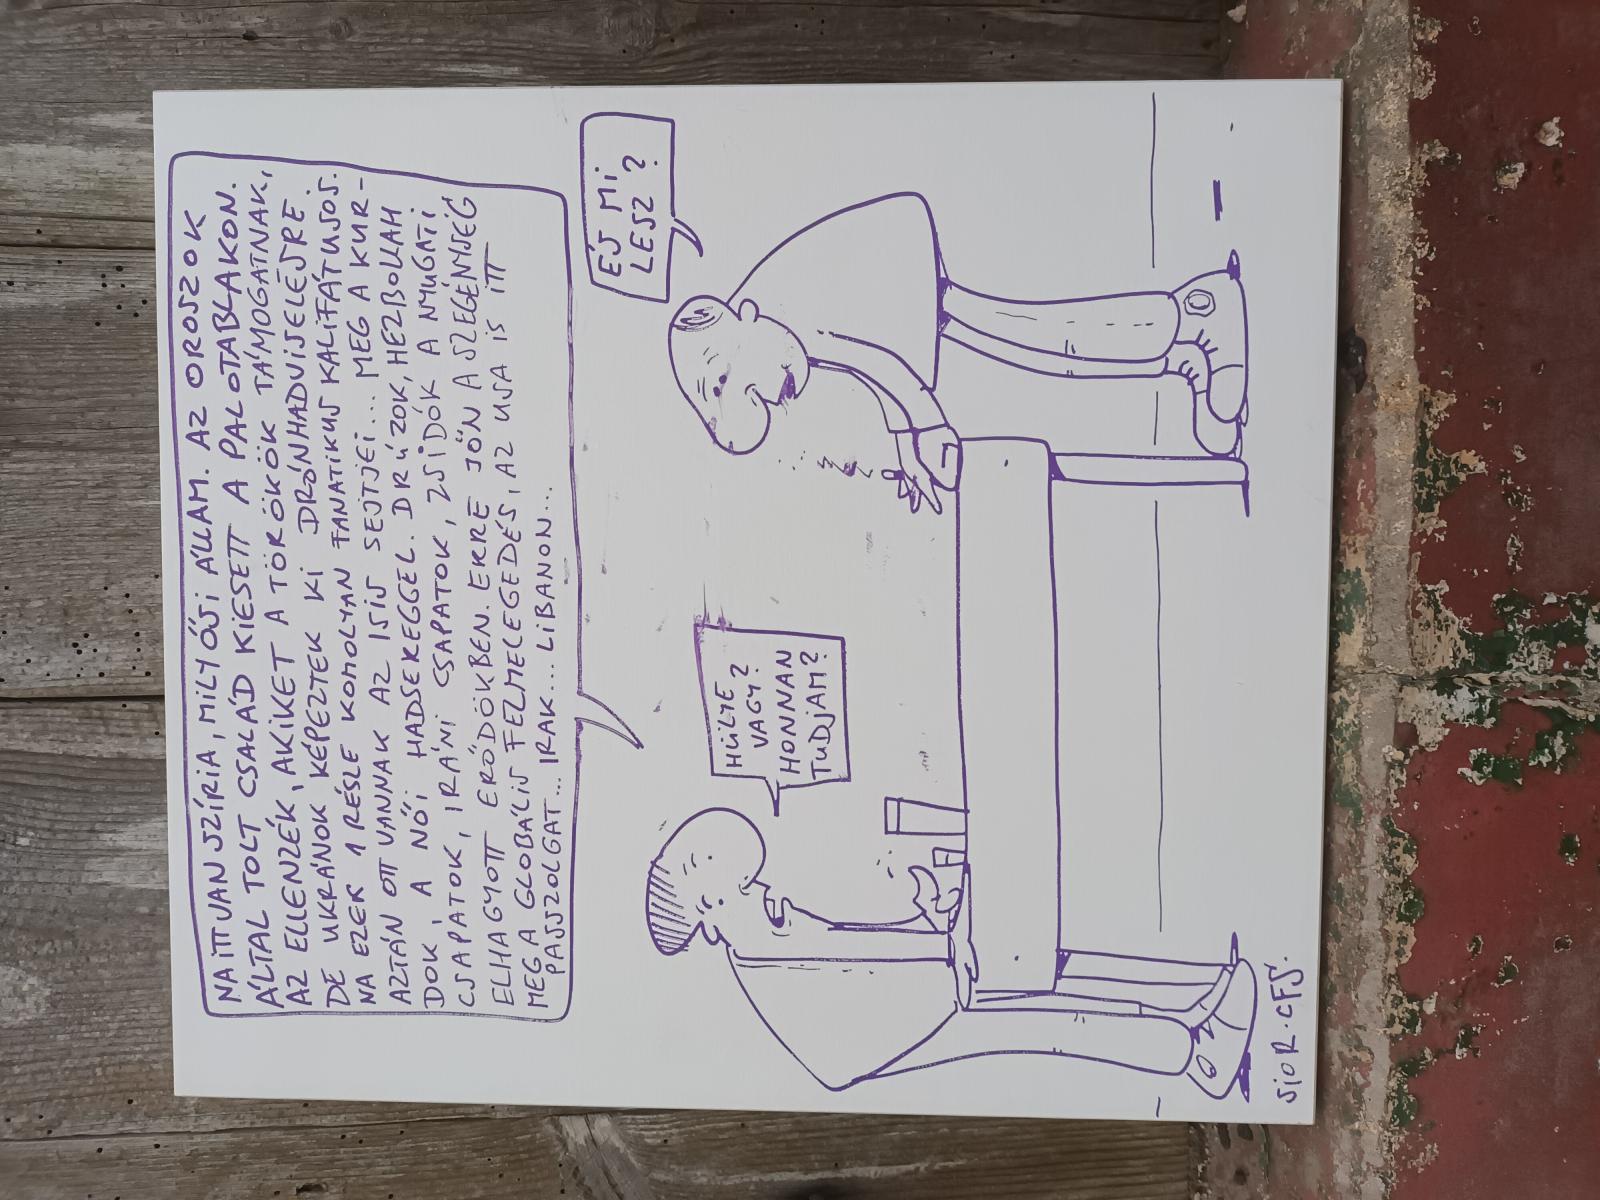 NA ITT VAN SZÍRIA, MILY ŐSI ÁLLAM. AZ OROSZOK
ÁLTAL TOLT CSALÁD KIESETT A PALOTABLAKON.
AZ ELLENZÉK, AKIKET A TÖRÖKÖK TÁMOGATNAK,
DE UKRÁNOK KÉPEZTEK KI DRÓNHADVISELÉSRE.
NA EZER 1 RÉSLE KOMOLYAN FANATIKUS KALIFÁTUSOS.
AZTÁN OTT VANNAK AZ ISIS SEJTJEI... MEG A KUR-
DOK, A NŐI HADSEREGGEL. DRÚZOK, HEZBOLLAH
CSAPATOK, IRÁNI CSAPATOK, ZSIDÓK A NYUGATI
ELHAGYOTT ERŐDÖKBEN. ERRE JÖN A SZEGÉNYSÉG
MEG A GLOBÁLIS FELMELEGEDÉS, AZ USA IS ITT
PASSZOLGAT... IRAK... LIBANON...
ÉS MI
LESZ?
HÜLYE
VAGY?
HONNAN
TUDJAM?
SIOR.CFS.